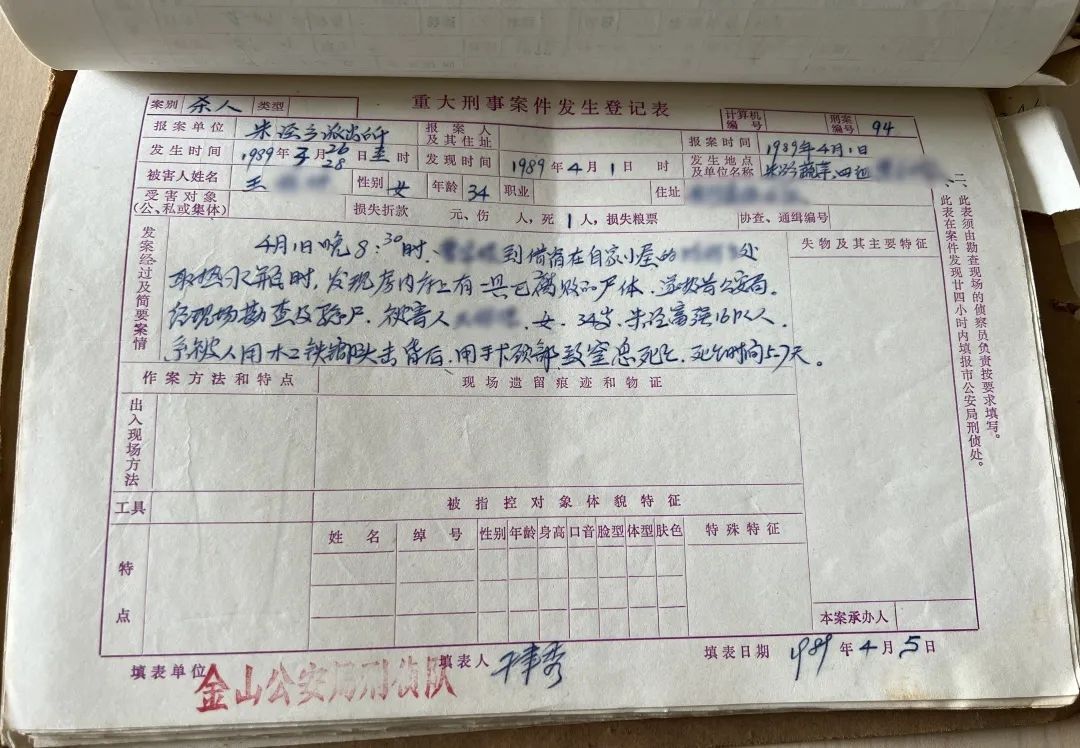 重大刑事案件发生登记表
案别 杀人 类型
计算机编号 刑案编号 94
报案单位 朱泾派出所 报案人及其住址 报案时间 1989年4月1日
发生时间 1989年3月26 28日 时 发现时间 1989年4月1日 时 发生地点及单位名称
被害人姓名 王 性别 女 年龄 34 职业 住址
受害对象(公、私或集体) 损失折款 元、伤 人,死1人,损失粮票 协查、通缉编号
发案经过及简要案情
4月1日晚8:30时, 到借宿在自家小屋的 处
取热水瓶时,发现房内床上有一具已腐败的尸体,遂报告公安局。
经现场勘查及验尸,被害人 ,女,34岁,朱泾 人。
系被人用水工铁榔头击背后,用手卡颈部致窒息死亡,死亡时间5-7天。
失物及其主要特征
作案方法和特点 现场遗留痕迹和物证
出入现场方法
工具 被指控对象体貌特征
姓名 绰号 性别 年龄 身高 口音 脸型 体型 肤色 特殊特征
特点
本案承办人
填表单位 金山公安局刑侦队 填表人 填表日期 1989年4月5日
二、此表须由勘查现场的侦察员负责按要求填写。
此表在案件发现廿四小时内填报市公安局刑侦处。